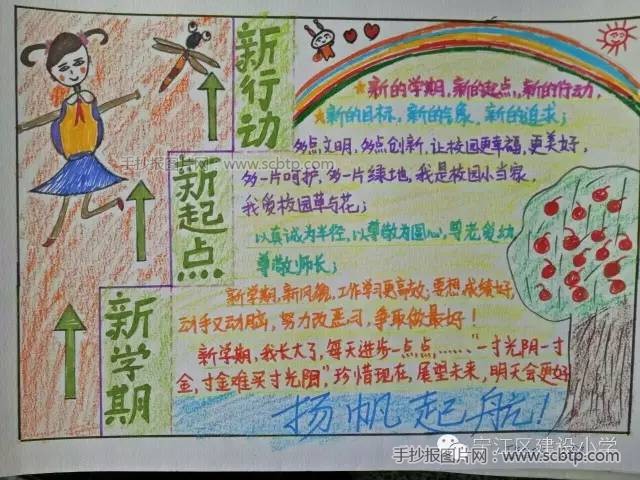 新行动
新起点
新学期
新的学期，新的起点，新的行动，
新的目标，新的气象，新的追求；
多点文明，多点创新，让校园更幸福，更美好，
多一片呵护，多一片绿地，我是校园小当家，
我爱校园草与花；
以真诚为半径，以尊敬为圆心，尊老爱幼，
尊敬师长；
新学期，新风貌，工作学习更高效；要想成绩好，
动手又动脑，努力改恶习，争取做最好！
新学期，我长大了，每天进步一点点，……“一寸光阴一寸
金，寸金难买寸光阴”，珍惜现在，展望未来，明天会更好
扬帆起航！
手抄报图片网：www.scbtp.com
宁江区建设小学
手抄报图片网：www.scbtp.com